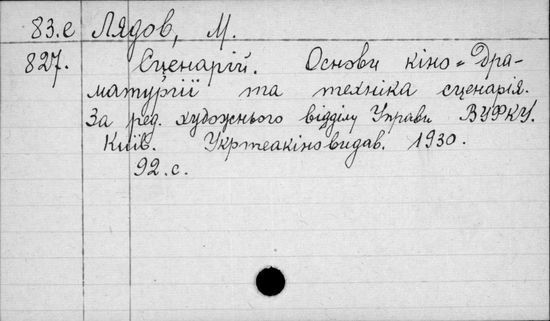 83.е Лядов, М.
827. Сценарій. Основи кіно-дра-
матургії та техніка сценарія.
За ред. художнього відділу Управи ВУФКУ.
Київ. Укртеакіновидав. 1930.
92.с.